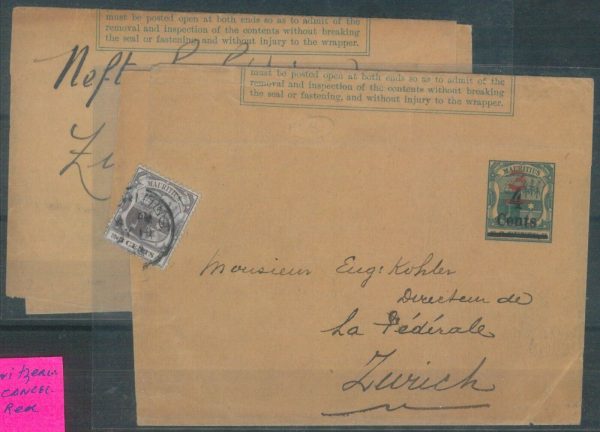 must be posted open at both ends so as to admit of the
removal and inspection of the contents without breaking
the seal or fastening, and without injury to the wrapper.
Neft
must be posted open at both ends so as to admit of the
removal and inspection of the contents without breaking
the seal or fastening, and without injury to the wrapper.
MAURITIUS
4
Cents
MAURITIUS
Monsieur Eug: Kohler
Directeur de
La Fédérale
Zurich
CANCEL-